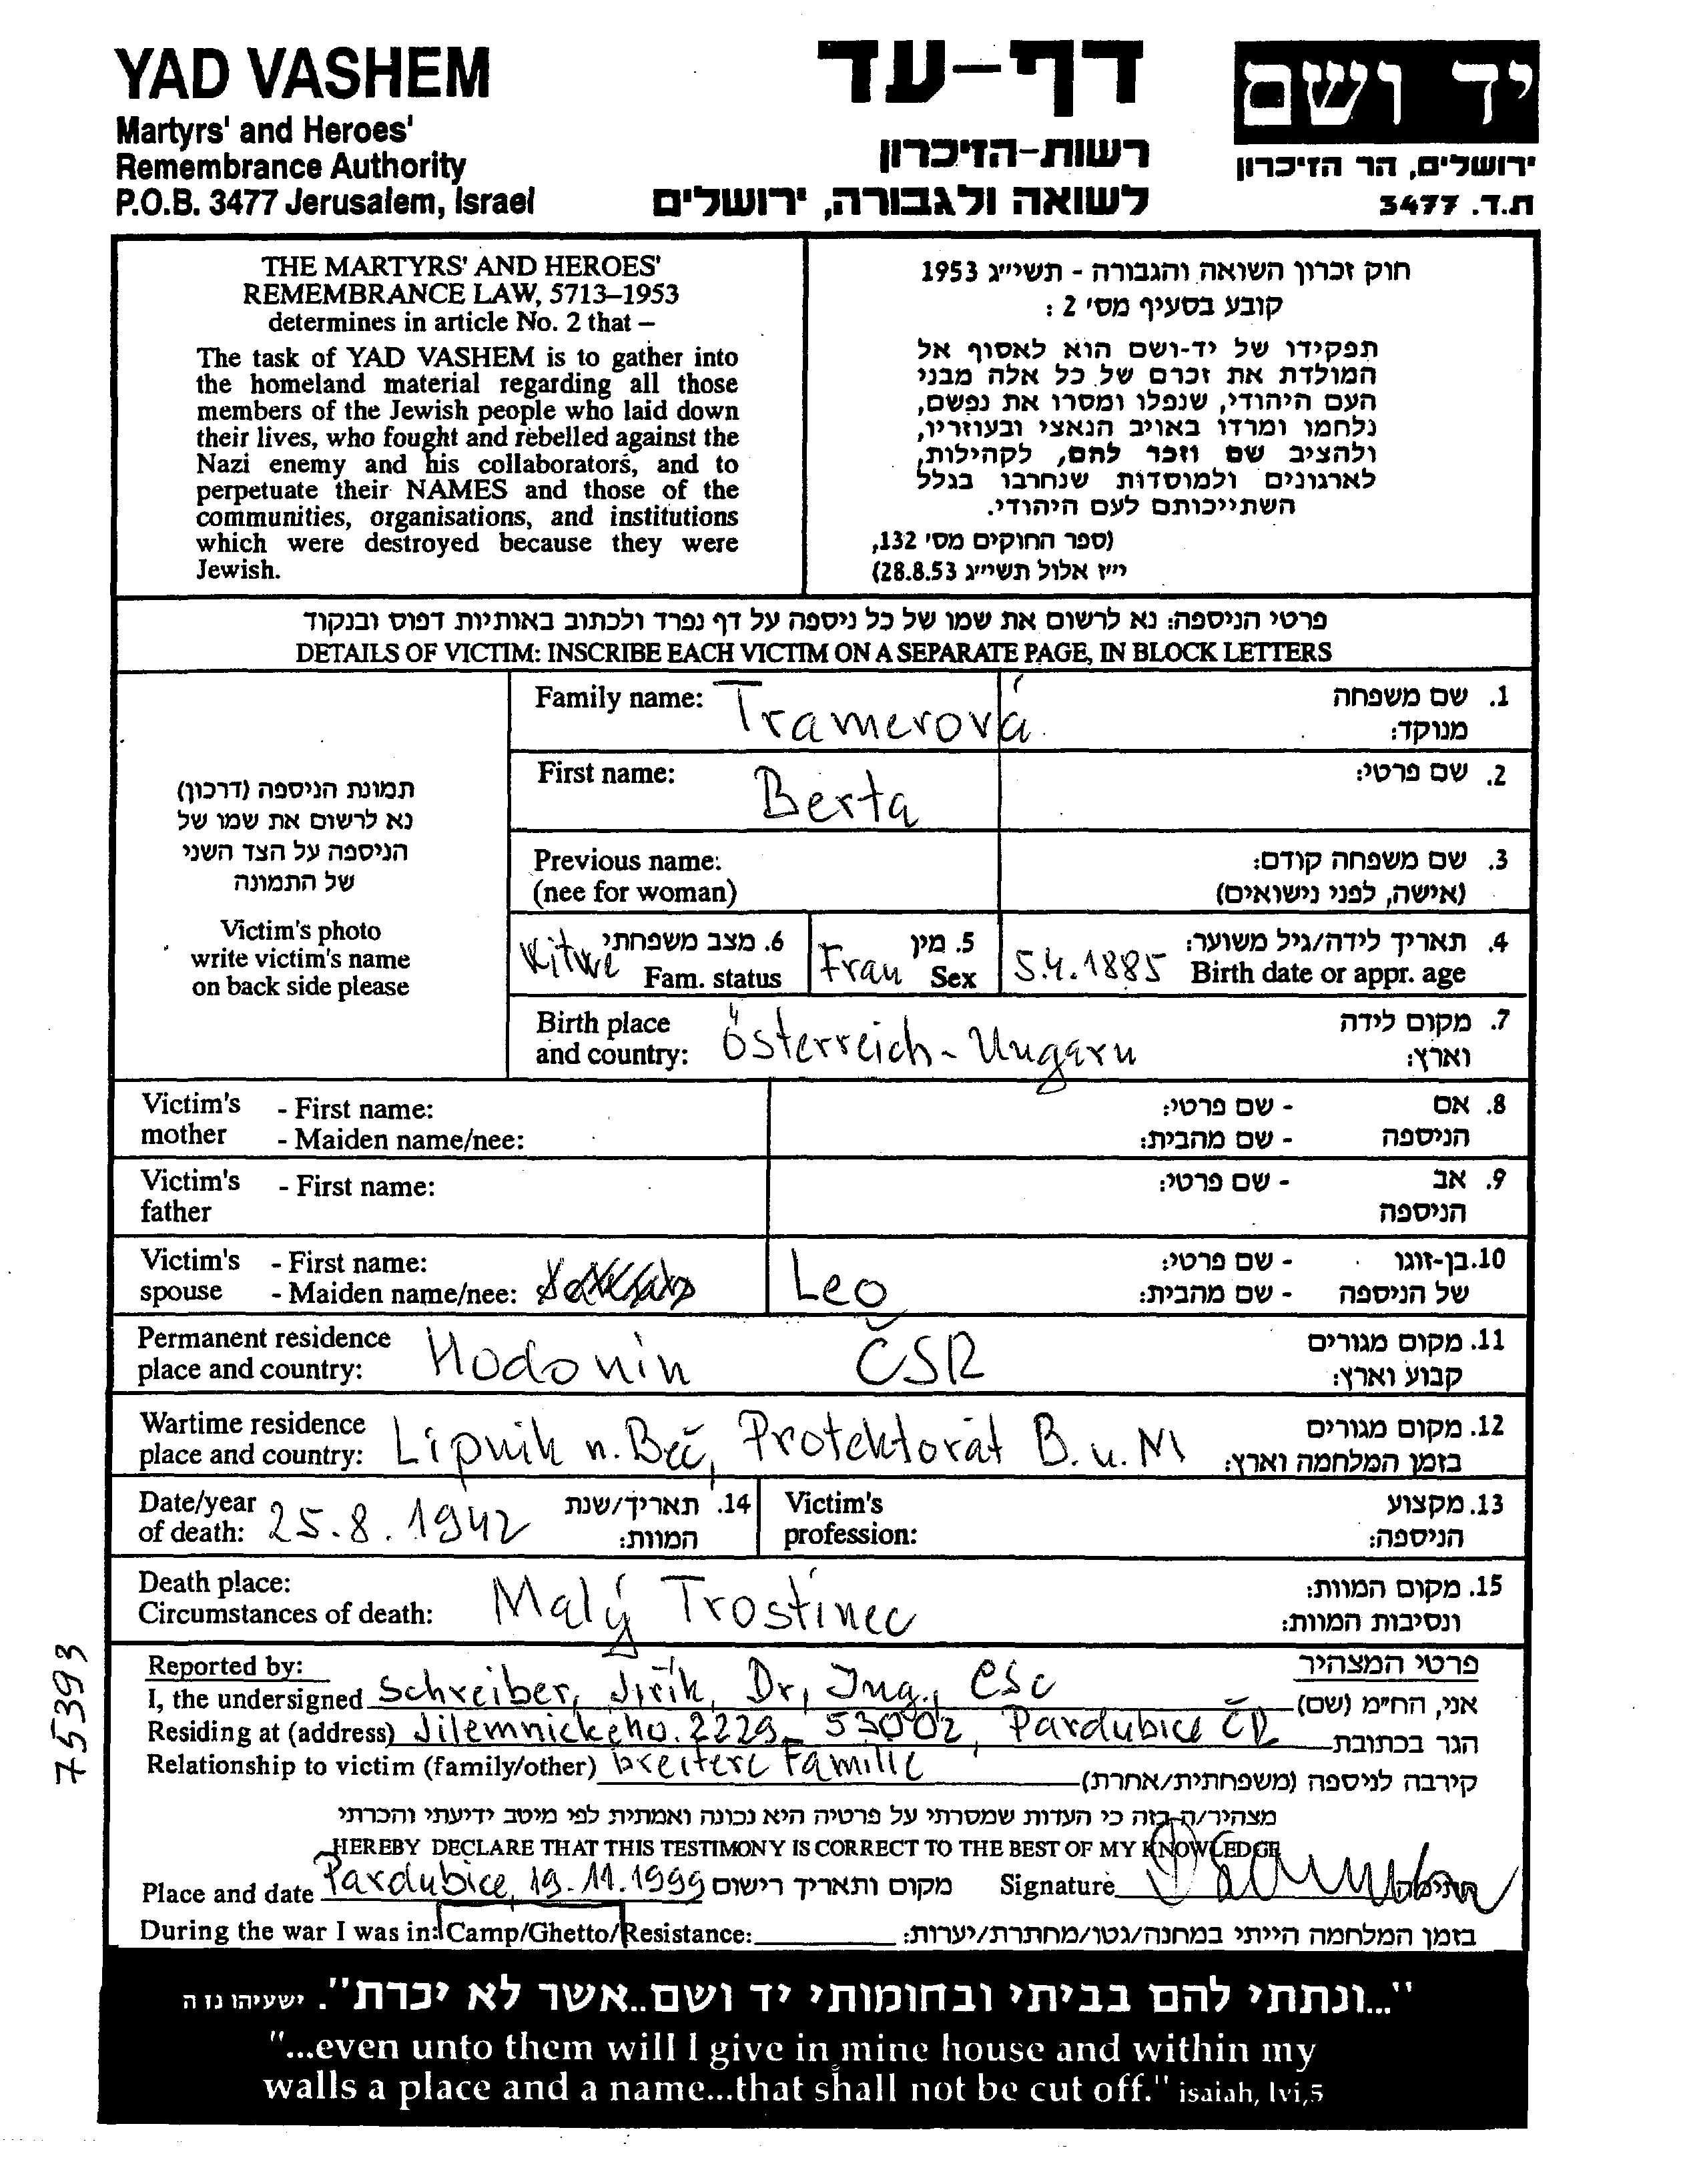 YAD VASHEM
Martyrs' and Heroes'
Remembrance Authority
P.O.B. 3477 Jerusalem, Israel
דף-עד
רשות-הזיכרון
לשואה ולגבורה, ירושלים
יד ושם
ירושלים, הר הזיכרון
ת.ד. 3477
THE MARTYRS' AND HEROES'
REMEMBRANCE LAW, 5713–1953
determines in article No. 2 that –
The task of YAD VASHEM is to gather into
the homeland material regarding all those
members of the Jewish people who laid down
their lives, who fought and rebelled against the
Nazi enemy and his collaborators, and to
perpetuate their NAMES and those of the
communities, organisations, and institutions
which were destroyed because they were
Jewish.
חוק זכרון השואה והגבורה - תשי״ג 1953
קובע בסעיף מס' 2 :
תפקידו של יד-ושם הוא לאסוף אל
המולדת את זכרם של כל אלה מבני
העם היהודי, שנפלו ומסרו את נפשם,
נלחמו ומרדו באויב הנאצי ובעוזריו,
ולהציב שם וזכר להם, לקהילות,
לארגונים ולמוסדות שנחרבו בגלל
השתייכותם לעם היהודי.
(ספר החוקים מס' 132,
י״ז אלול תשי״ג 28.8.53)
פרטי הניספה: נא לרשום את שמו של כל ניספה על דף נפרד ולכתוב באותיות דפוס ובנקוד
DETAILS OF VICTIM: INSCRIBE EACH VICTIM ON A SEPARATE PAGE, IN BLOCK LETTERS
תמונת הניספה (דרכון)
נא לרשום את שמו של
הניספה על הצד השני
של התמונה
Victim's photo
write victim's name
on back side please
Family name: Tramerová 1. שם משפחה
מנוקד:
First name: Berta 2. שם פרטי:
Previous name: 3. שם משפחה קודם:
(nee for woman) (אישה, לפני נישואים)
Witwe 6. מצב משפחתי Frau 5. מין 5.4.1885 4. תאריך לידה/גיל משוער:
Fam. status Sex Birth date or appr. age
Birth place Österreich-Ungarn 7. מקום לידה
and country: וארץ:
Victim's - First name: - שם פרטי: 8. אם
mother - Maiden name/nee: - שם מהבית: הניספה
Victim's - First name: - שם פרטי: 9. אב
father הניספה
Victim's - First name: Leo - שם פרטי: 10. בן-זוגו
spouse - Maiden name/nee: - שם מהבית: של הניספה
Permanent residence Hodonín ČSR 11. מקום מגורים
place and country: קבוע וארץ:
Wartime residence Lipnik n. Beč, Protektorát B.u.M 12. מקום מגורים
place and country: בזמן המלחמה וארץ:
Date/year 25.8.1942 14. תאריך/שנת Victim's 13. מקצוע
of death: המוות: profession: הניספה:
Death place: Malý Trostinec 15. מקום המוות:
Circumstances of death: ונסיבות המוות:
Reported by: פרטי המצהיר
I, the undersigned Schreiber, Jiřík, Dr, Ing., CSc אני, הח״מ (שם)
Residing at (address) Jilemnického 2229 53002, Pardubice ČR הגר בכתובת
Relationship to victim (family/other) breitere Familie קירבה לניספה (משפחתית/אחרת)
מצהיר/ה בזה כי העדות שמסרתי על פרטיה היא נכונה ואמתית לפי מיטב ידיעתי והכרתי
HEREBY DECLARE THAT THIS TESTIMONY IS CORRECT TO THE BEST OF MY KNOWLEDGE
Place and date Pardubice, 19.11.1999 מקום ותאריך רישום Signature חתימה
During the war I was in: Camp/Ghetto/Resistance: בזמן המלחמה הייתי במחנה/גטו/מחתרת/יערות:
75393
"...ונתתי להם בביתי ובחומותי יד ושם..אשר לא יכרת". ישעיהו נז ה
"...even unto them will I give in mine house and within my
walls a place and a name...that shall not be cut off." isaiah, lvi,5